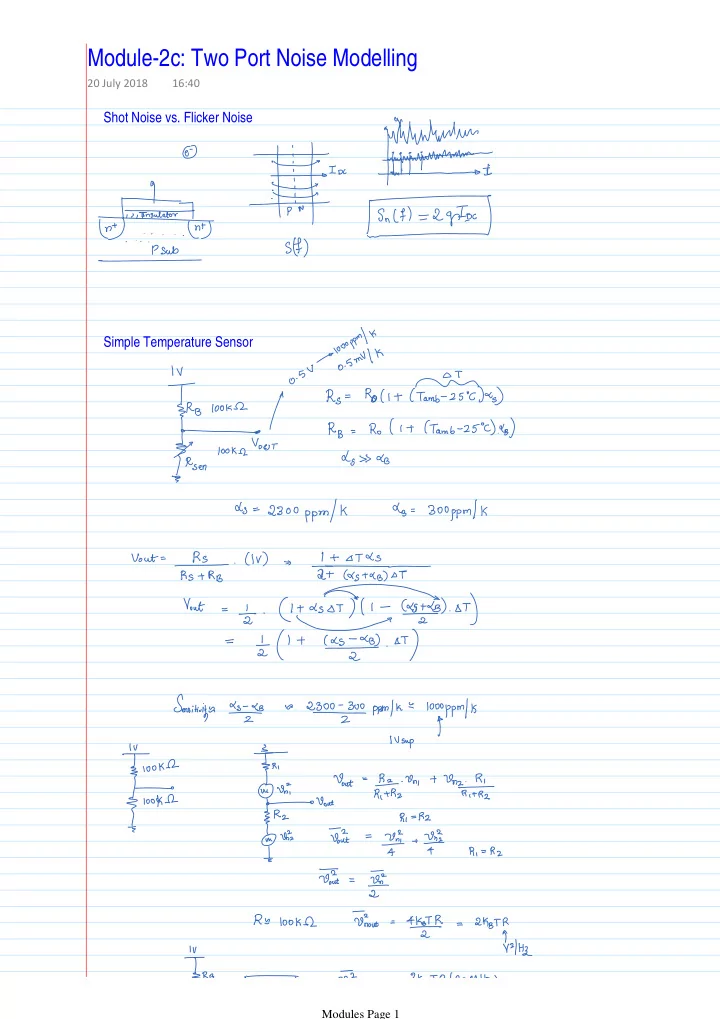 Module-2c: Two Port Noise Modelling
20 July 2018 16:40
Shot Noise vs. Flicker Noise
I DC
I
g
Insulator
n+ n+
P Sub
P N
S(f)
Sn(f) = 2qIDC
Simple Temperature Sensor
1V
RB 100KΩ
VOUT
100KΩ
Rsen
0.5V
1000ppm/K
0.5mV/K
ΔT
RS = R0(1+ (Tamb-25°C)αS)
RB = R0 (1+ (Tamb-25°C).αB)
αS >> αB
αS = 2300 ppm/K αB = 300ppm/K
Vout = RS/(RS+RB) . (1V) ≈ (1+ΔTαS)/(2+(αS+αB)ΔT)
Vout = 1/2 . (1+αSΔT)(1 - (αS+αB)/2 . ΔT)
= 1/2 (1+ (αS-αB)/2 . ΔT)
Sensitivity ≈ (αS-αB)/2 ≈ (2300-300)/2 ppm/K ≅ 1000ppm/K
1V sup
1V
100KΩ
100KΩ
R1
vn1²
Vout
R2
vn2²
vout = R2/(R1+R2) . vn1 + vn2 . R1/(R1+R2)
R1=R2
vout² = vn1²/4 + vn2²/4 R1=R2
vout² = vn²/2
R≅ 100KΩ vnout² = 4KBTR/2 = 2KBTR
V²/Hz
1V